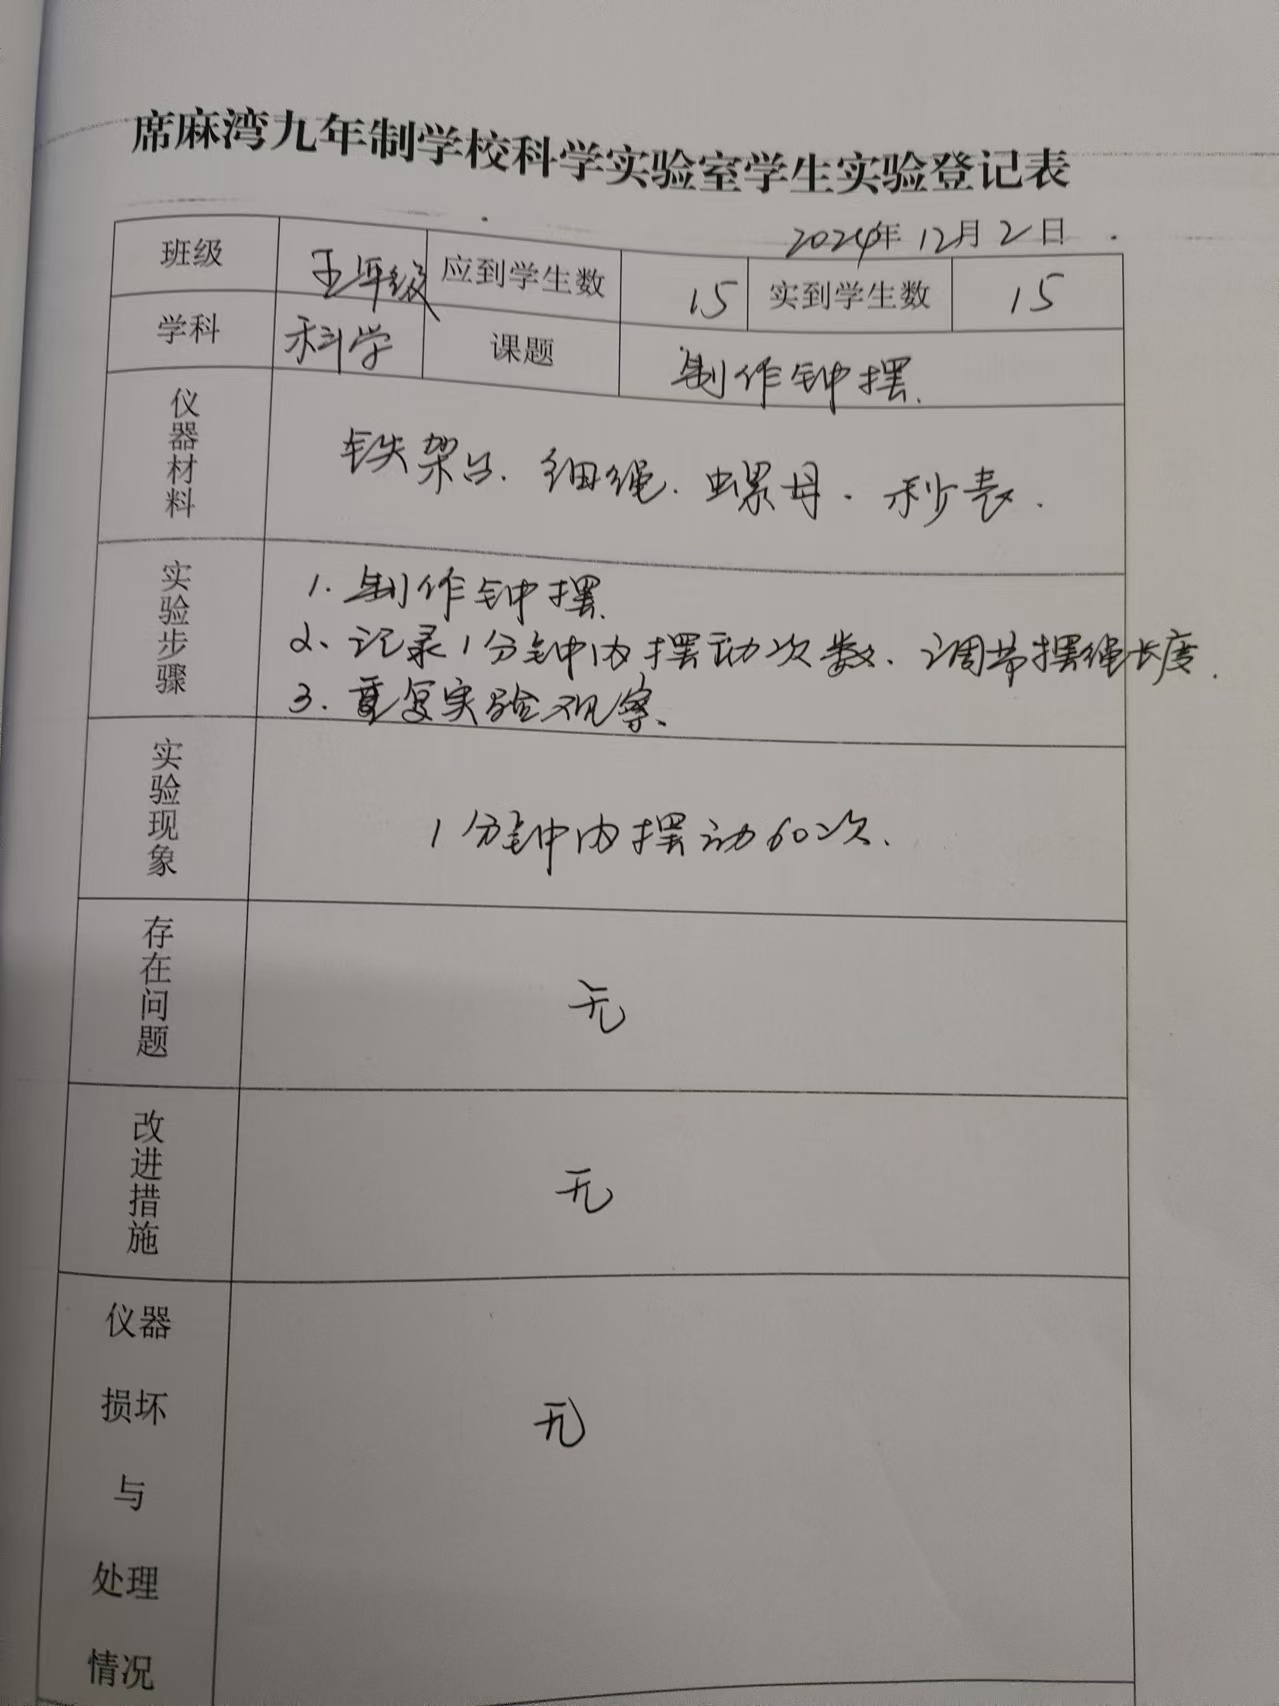 席麻湾九年制学校科学实验室学生实验登记表
2024年12月2日
班级 五年级 应到学生数 15 实到学生数 15
学科 科学 课题 制作钟摆.
仪器材料 铁架台、细绳、螺母、秒表.
实验步骤
1. 制作钟摆.
2、记录1分钟内摆动次数、调节摆绳长度.
3、重复实验观察、
实验现象 1分钟内摆动60次.
存在问题 无
改进措施 无
仪器
损坏
与
处理
情况
无